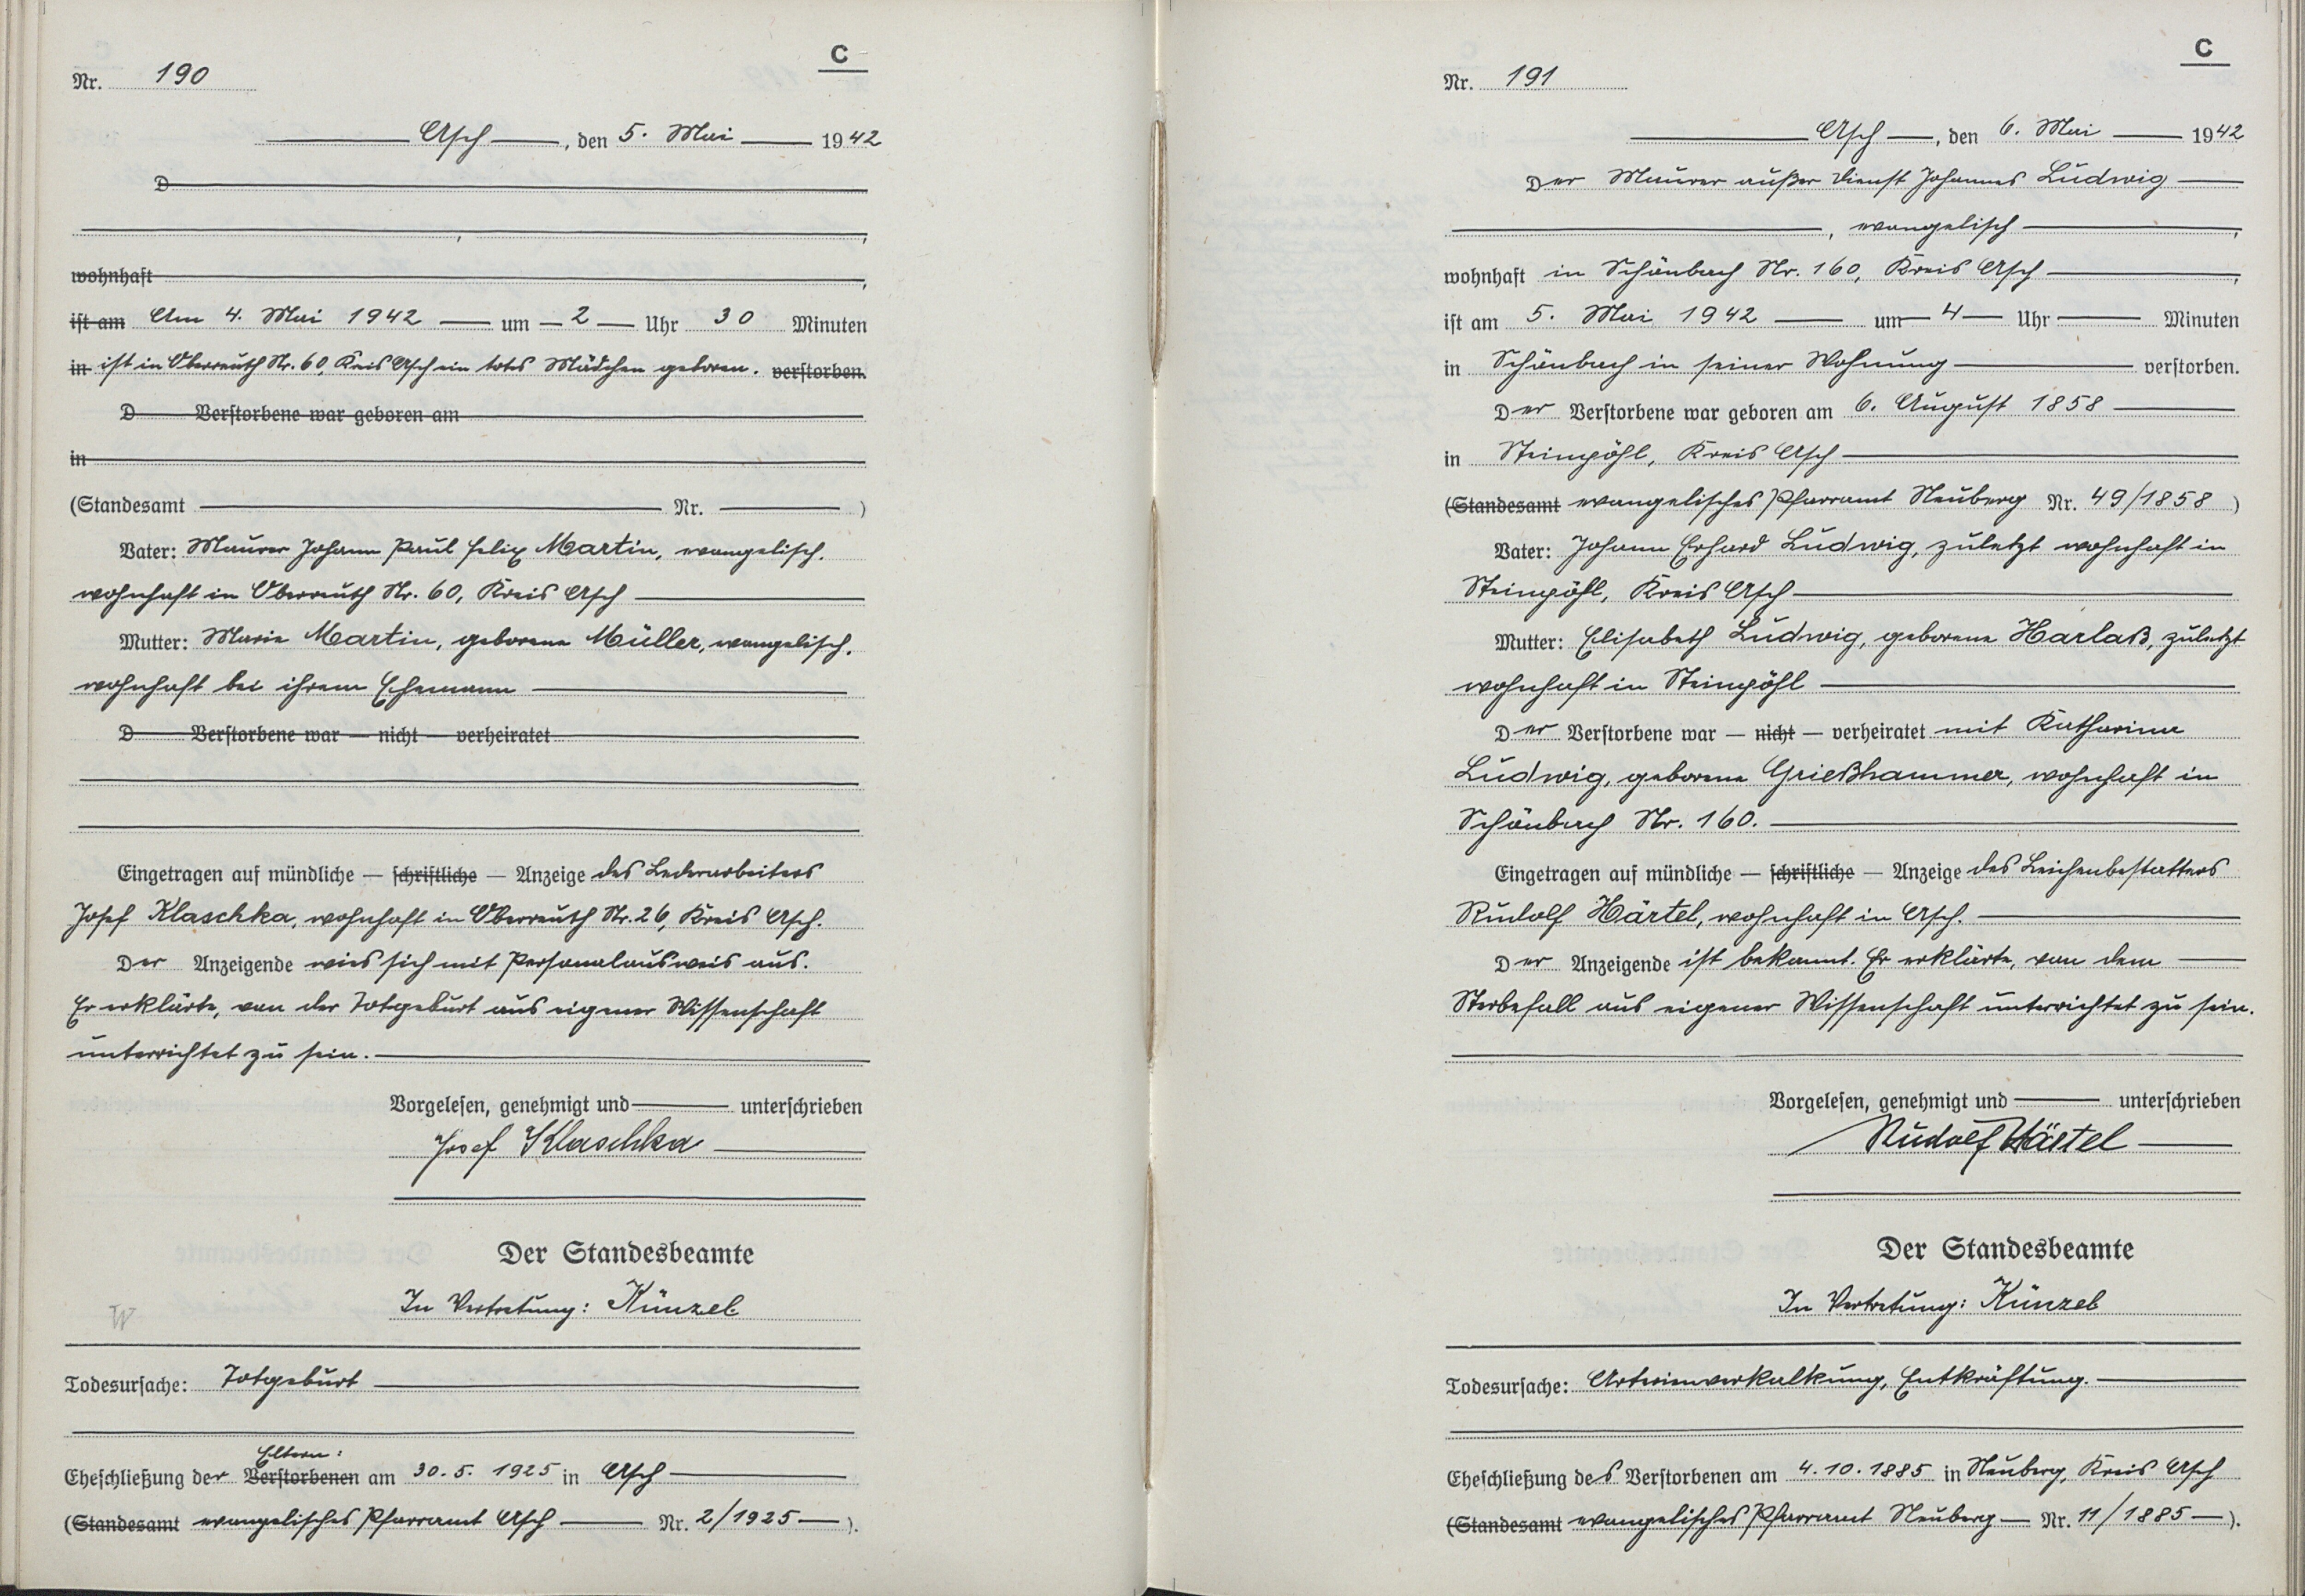 C
Nr. 190
Asch, den 5. Mai 1942
D
wohnhaft
ist am Am 4. Mai 1942 um 2 Uhr 30 Minuten
in ist in Oberreuth Nr. 60, Kreis Asch ein totes Mädchen geboren. verstorben.
D Verstorbene war geboren am
in
(Standesamt Nr. )
Vater: Maurer Johann Paul Felix Martin, evangelisch,
wohnhaft in Oberreuth Nr. 60, Kreis Asch
Mutter: Marie Martin, geborene Müller, evangelisch,
wohnhaft bei ihrem Ehemann
D Verstorbene war — nicht — verheiratet
Eingetragen auf mündliche — schriftliche — Anzeige des Lederarbeiters
Josef Klaschka, wohnhaft in Oberreuth Nr. 26, Kreis Asch.
Der Anzeigende wies sich mit Personalausweis aus.
Er erklärte, von der Totgeburt aus eigener Wissenschaft
unterrichtet zu sein.
Vorgelesen, genehmigt und unterschrieben
Josef Klaschka
Der Standesbeamte
In Vertretung: Künzel
W
Todesursache: Totgeburt
Eltern:
Eheschließung der Verstorbenen am 30.5.1925 in Asch
(Standesamt evangelisches Pfarramt Asch Nr. 2/1925).
C
Nr. 191
Asch, den 6. Mai 1942
Der Maurer außer Dienst Johannes Ludwig
, evangelisch,
wohnhaft in Schönbach Nr. 160, Kreis Asch,
ist am 5. Mai 1942 um 4 Uhr Minuten
in Schönbach in seiner Wohnung verstorben.
Der Verstorbene war geboren am 6. August 1858
in Steinpöhl, Kreis Asch
(Standesamt evangelisches Pfarramt Neuberg Nr. 49/1858)
Vater: Johann Erhard Ludwig, zuletzt wohnhaft in
Steinpöhl, Kreis Asch
Mutter: Elisabeth Ludwig, geborene Harlaß, zuletzt
wohnhaft in Steinpöhl
Der Verstorbene war — nicht — verheiratet mit Katharina
Ludwig, geborene Grießhammer, wohnhaft in
Schönbach Nr. 160.
Eingetragen auf mündliche — schriftliche — Anzeige des Leichenbestatters
Rudolf Härtel, wohnhaft in Asch.
Der Anzeigende ist bekannt. Er erklärte, von dem
Sterbefall aus eigener Wissenschaft unterrichtet zu sein.
Vorgelesen, genehmigt und unterschrieben
Rudolf Härtel
Der Standesbeamte
In Vertretung: Künzel
Todesursache: Arterienverkalkung, Entkräftung.
Eheschließung des Verstorbenen am 4.10.1885 in Neuberg, Kreis Asch
(Standesamt evangelisches Pfarramt Neuberg Nr. 11/1885).